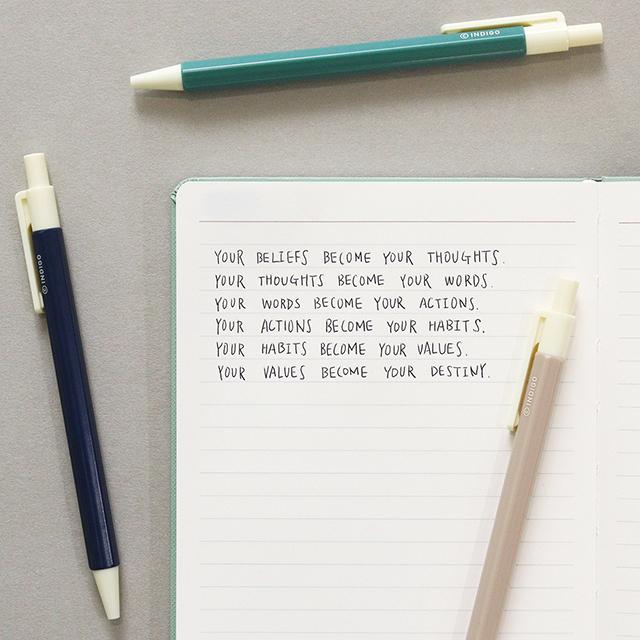 © INDIGO
© INDIGO
YOUR BELIEFS BECOME YOUR THOUGHTS.
YOUR THOUGHTS BECOME YOUR WORDS.
YOUR WORDS BECOME YOUR ACTIONS.
YOUR ACTIONS BECOME YOUR HABITS.
YOUR HABITS BECOME YOUR VALUES.
YOUR VALUES BECOME YOUR DESTINY.
© INDIGO